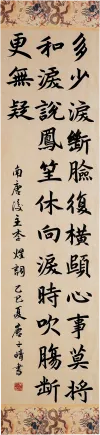 多少淚斷臉復橫頤心事莫將
和淚說鳳笙休向淚時吹腸斷
更無疑
南唐後主李煜詞